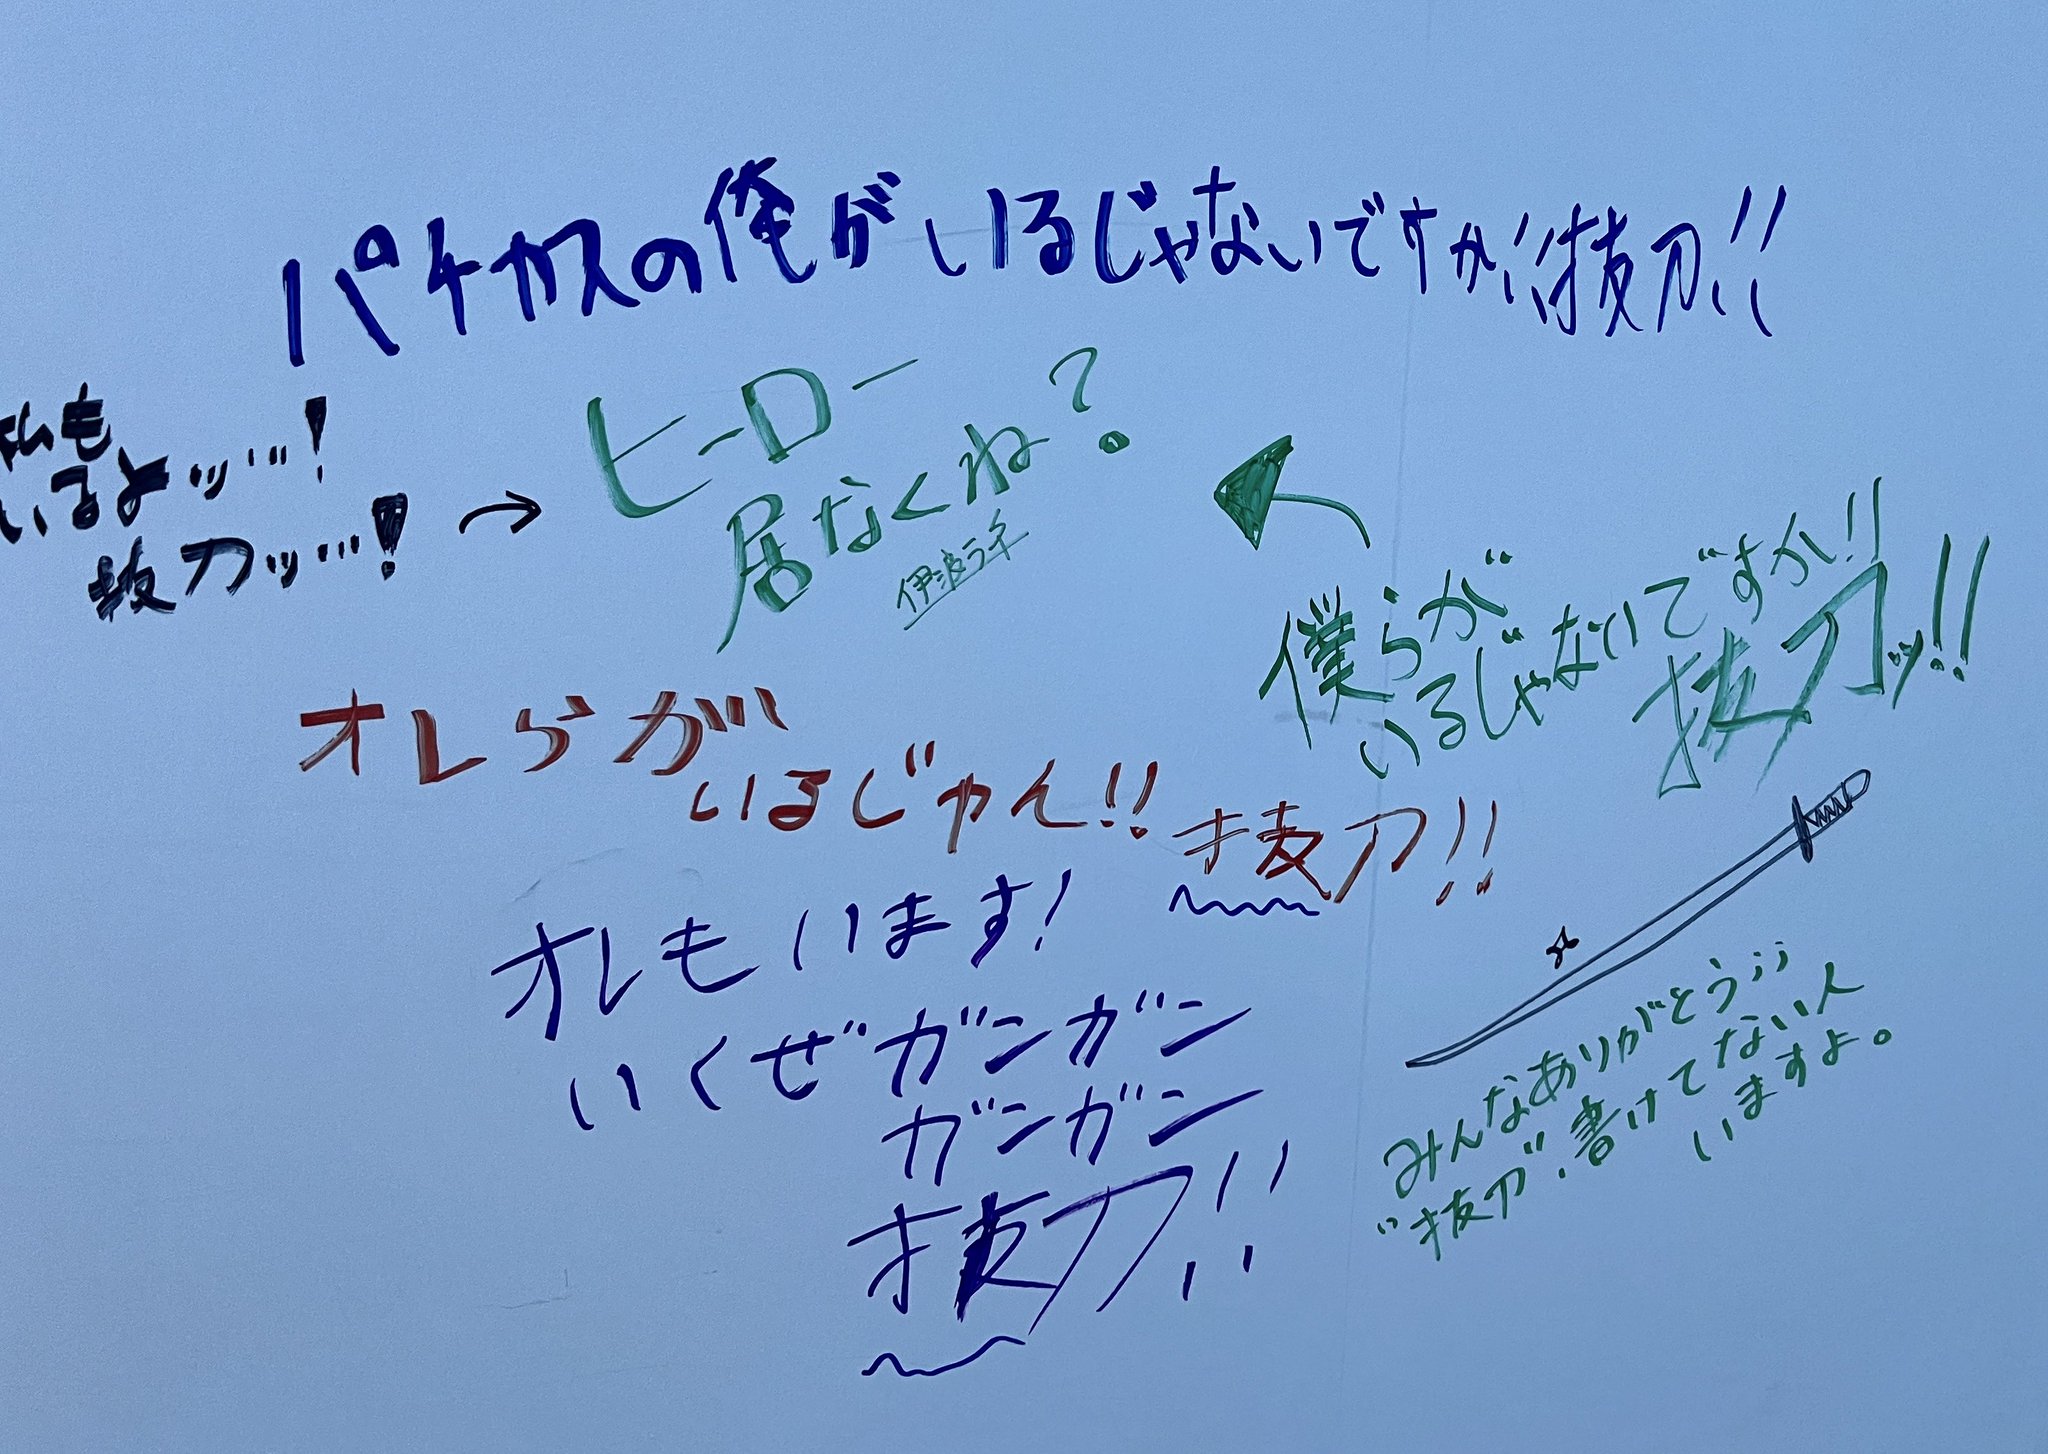 パチカスの俺がいるじゃないですか!!抜刀!!
私も
いるよッ…!
抜刀ッ…!
→
ヒーロー
居なくね?
伊波ライ
僕らが
いるじゃないですか!!
抜刀ッ!!
オレらが
いるじゃん!!
抜刀!!
オレもいます!
いくぜガンガン
ガンガン
抜刀!!
みんなありがとう;;
"抜刀"、書けてない人
いますよ。